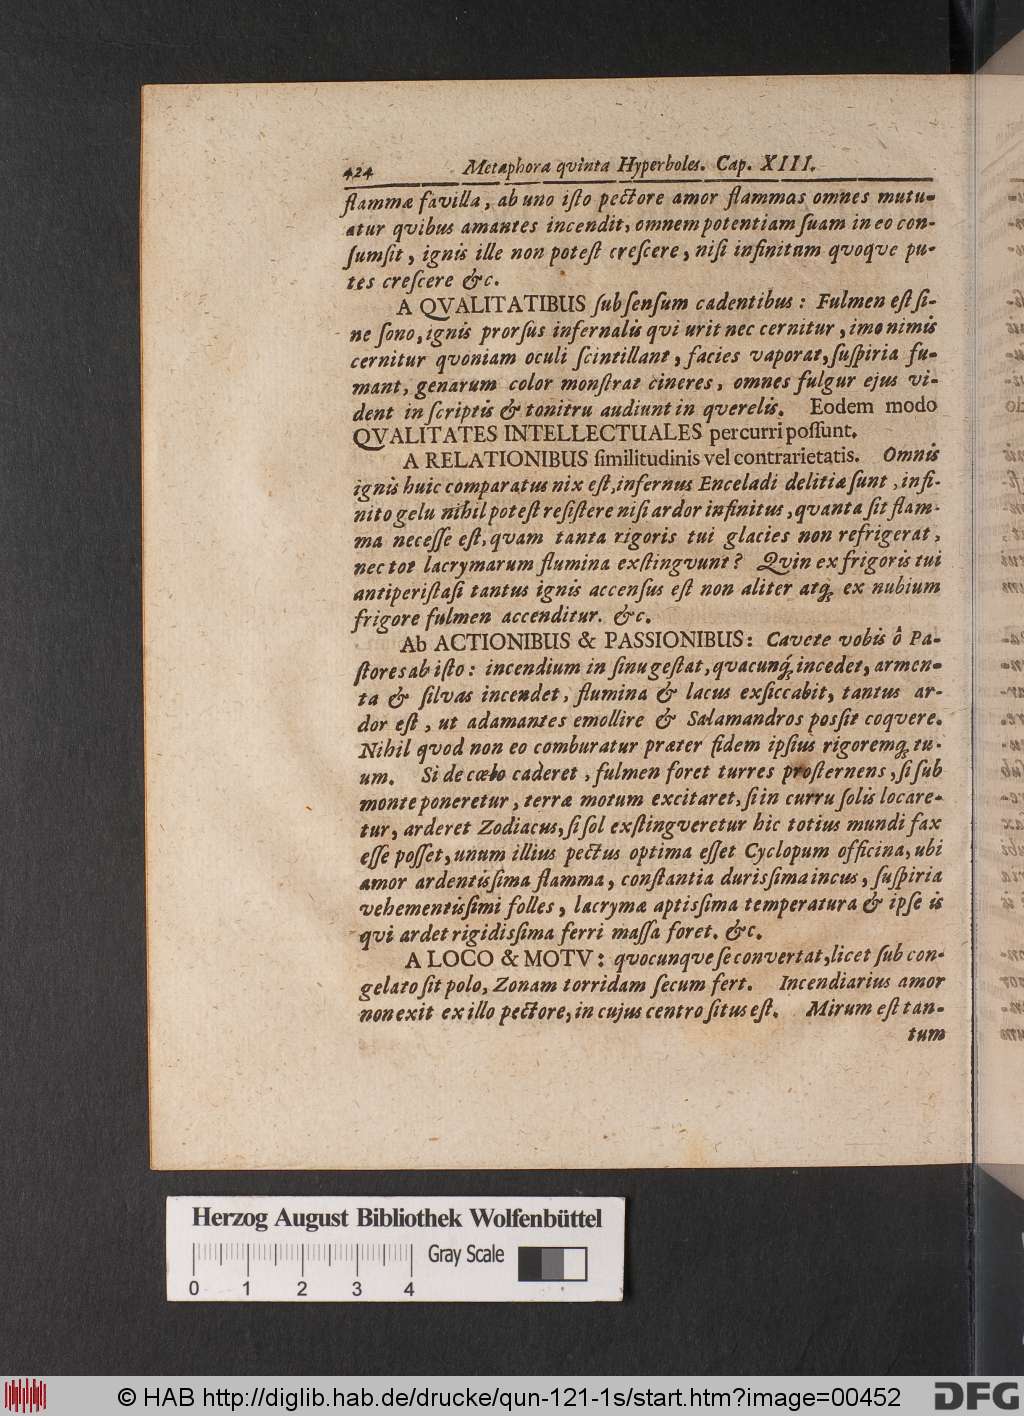 424 Metaphora qvinta Hyperboles. Cap. XIII.
flammæ favilla, ab uno iſto pectore amor flammas omnes mutu-
atur qvibus amantes incendit, omnem potentiam ſuam in eo con-
ſumſit, ignis ille non poteſt creſcere, niſi infinitum qvoqve pu-
tes creſcere &c.
A QVALITATIBUS ſub ſenſum cadentibus: Fulmen eſt ſi-
ne ſono, ignis prorſus infernalis qvi urit nec cernitur, imo nimis
cernitur qvoniam oculi ſcintillant, facies vaporat, ſuſpiria fu-
mant, genarum color monſtrat cineres, omnes fulgur ejus vi-
dent in ſcriptis & tonitru audiunt in qverelis. Eodem modo
QVALITATES INTELLECTUALES percurri poſſunt.
A RELATIONIBUS ſimilitudinis vel contrarietatis. Omnis
ignis huic comparatus nix eſt, infernus Enceladi delitiæ ſunt, infi-
nito gelu nihil poteſt reſiſtere niſi ardor infinitus, qvanta ſit flam-
ma neceſſe eſt, qvam tanta rigoris tui glacies non refrigerat,
nec tot lacrymarum flumina exſtingvunt? Qvin ex frigoris tui
antiperiſtaſi tantus ignis accenſus eſt non aliter atq; ex nubium
frigore fulmen accenditur. &c.
Ab ACTIONIBUS & PASSIONIBUS: Cavete vobis ô Pa-
ſtores ab iſto: incendium in ſinu geſtat, qvacunq́; incedet, armen-
ta & ſilvas incendet, flumina & lacus exſiccabit, tantus ar-
dor eſt, ut adamantes emollire & Salamandros posſit coqvere.
Nihil qvod non eo comburatur præter fidem ipſius rigoremq; tu-
um. Si de cœlo caderet, fulmen foret turres proſternens, ſi ſub
monte poneretur, terræ motum excitaret, ſi in curru ſolis locare-
tur, arderet Zodiacus, ſi ſol exſtingveretur hic totius mundi fax
eſſe poſſet, unum illius pectus optima eſſet Cyclopum officina, ubi
amor ardentisſima flamma, conſtantia durisſima incus, ſuſpiria
vehementisſimi folles, lacrymæ aptisſima temperatura & ipſe is
qvi ardet rigidisſima ferri maſſa foret. &c.
A LOCO & MOTV: qvocunqve ſe convertat, licet ſub con-
gelato ſit polo, Zonam torridam ſecum fert. Incendiarius amor
non exit ex illo pectore, in cujus centro ſitus eſt. Mirum eſt tan-
tum
Herzog August Bibliothek Wolfenbüttel
Gray Scale
0 1 2 3 4
© HAB http://diglib.hab.de/drucke/qun-121-1s/start.htm?image=00452
DFG